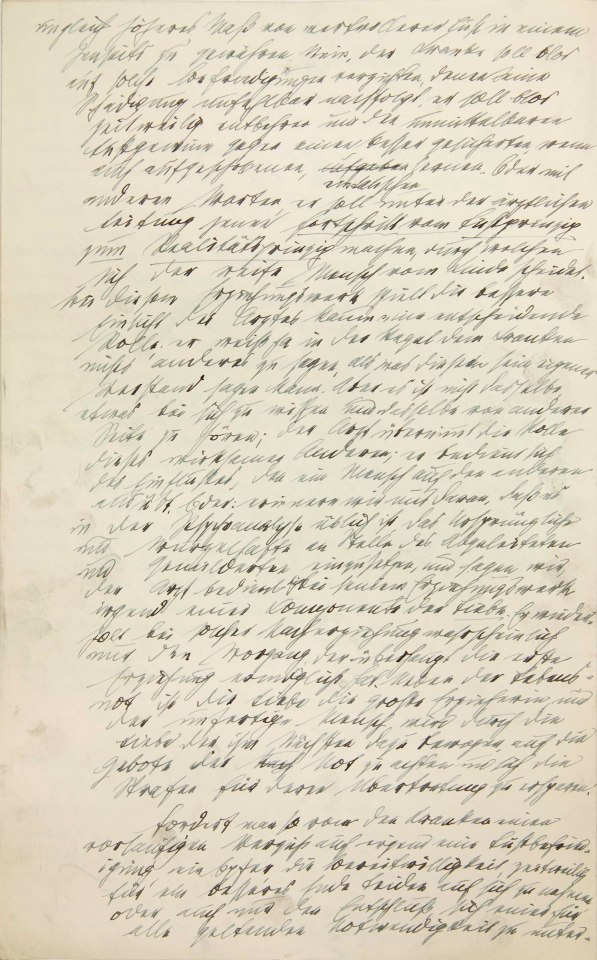 ungleich höheres Maß von wertvollerer Lust in einem
Jenseits zu gewähren. Nein, der Kranke soll blos
auf solche Befriedigungen verzichten, denen eine
Schädigung unfehlbar nachfolgt, er soll blos
zeitweilig entbehren, um den unmittelbaren
Lustgewinn gegen einen besser gesicherten, wenn
auch aufgeschobenen, umtauschen lernen. Oder mit
anderen Worten er soll unter der ärztlichen
Leitung jenen Fortschritt vom Lustprinzip
zum Realitätsprinzip machen, durch welchen
sich der reife Mensch vom Kinde scheidet.
Bei diesem Erziehungswerk spielt die bessere
Einsicht des Arztes kaum eine entscheidende
Rolle. er weiß ja in der Regel dem Kranken
nichts anderes zu sagen als was diesem sein eigener
Verstand sagen kann. Aber es ist nicht dasselbe
etwas bei sich zu wissen und dasselbe von anderer
Seite zu hören; der Arzt übernimmt die Rolle
dieses wirksamen Anderen; er bedient sich
des Einflusses, den ein Mensch auf den anderen
ausübt. Oder: erinnern wir uns daran, daß es
in der Psychoanalyse üblich ist das Ursprüngliche
und Wurzelhafte an Stelle des Abgeleiteten
und Gemilderten einzusetzen, und sagen wir
der Arzt bedient sich bei seinem Erziehungswerk
irgend einer Componente der Liebe. Er wieder-
holt bei solcher Nacherziehung wahrscheinlich
nur den Vorgang, der überhaupt die erste
Erziehung ermöglicht hat. Neben der Lebens-
not ist die Liebe die große Erzieherin und
der unfertige Mensch wird durch die
Liebe der ihm Nächsten dazu bewogen, auf die
Gebote der Not zu achten und sich die
Strafen für deren Übertretung zu ersparen.
Fordert man so von den Kranken einen
vorläufigen Verzicht auf irgend eine Lustbefried-
igung, ein Opfer, die Bereitwilligkeit zeitweilig
für ein besseres Ende Leiden auf sich zu nehmen
oder auch nur den Entschluß, sich einer für
alle geltenden Notwendigkeit zu unter-